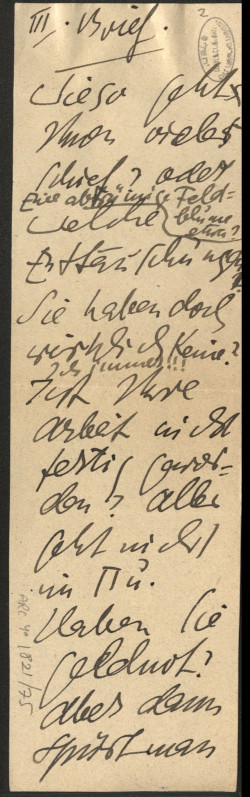 III. Brief.
2
Wieso geht's
Ihnen wieder
schief? oder
Eine abtrünnige Feld-
blume
etwa?
welche
Enttäuschungen
Sie haben doch
wirklich keine?
Ich immer!!!
Ist Ihre
Arbeit nicht
fertig gewor=
den? alles
geht nicht
im Nu.
Haben Sie
Geldnot?
Aber dann
spürt man
ARC 4° 1821/75